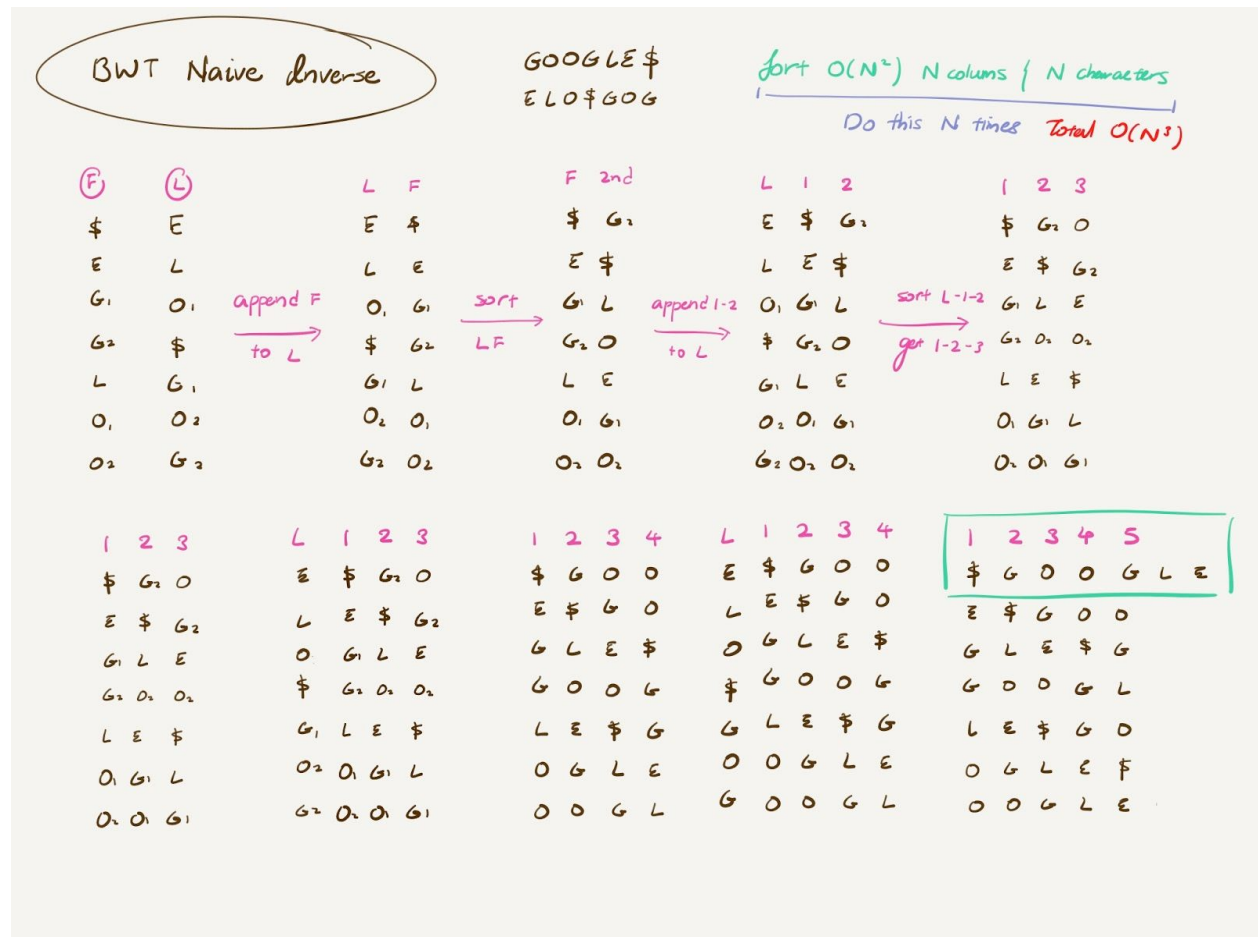 BWT Naive Inverse
GOOGLE$
ELO$GOG
Sort O(N²) N colums { N characters
Do this N times Total O(N³)
F L
$ E
E L
G₁ O₁
G₂ $
L G₁
O₁ O₂
O₂ G₂
append F
to L
L F
E $
L E
O₁ G₁
$ G₂
G₁ L
O₂ O₁
G₂ O₂
sort
LF
F 2nd
$ G₂
E $
G₁ L
G₂ O
L E
O₁ G₁
O₂ O₂
append 1-2
to L
L 1 2
E $ G₂
L E $
O₁ G₁ L
$ G₂ O
G₁ L E
O₂ O₁ G₁
G₂ O₂ O₂
sort L-1-2
get 1-2-3
1 2 3
$ G₂ O
E $ G₂
G₁ L E
G₂ O₂ O₂
L E $
O₁ G₁ L
O₂ O₁ G₁
1 2 3
$ G₂ O
E $ G₂
G₁ L E
G₂ O₂ O₂
L E $
O₁ G₁ L
O₂ O₁ G₁
L 1 2 3
E $ G₂ O
L E $ G₂
O G₁ L E
$ G₂ O₂ O₂
G₁ L E $
O₂ O₁ G₁ L
G₂ O₂ O₁ G₁
1 2 3 4
$ G O O
E $ G O
G L E $
G O O G
L E $ G
O G L E
O O G L
L 1 2 3 4
E $ G O O
L E $ G O
O G L E $
$ G O O G
G L E $ G
O O G L E
G O O G L
1 2 3 4 5
$ G O O G L E
E $ G O O
G L E $ G
G O O G L
L E $ G O
O G L E $
O O G L E